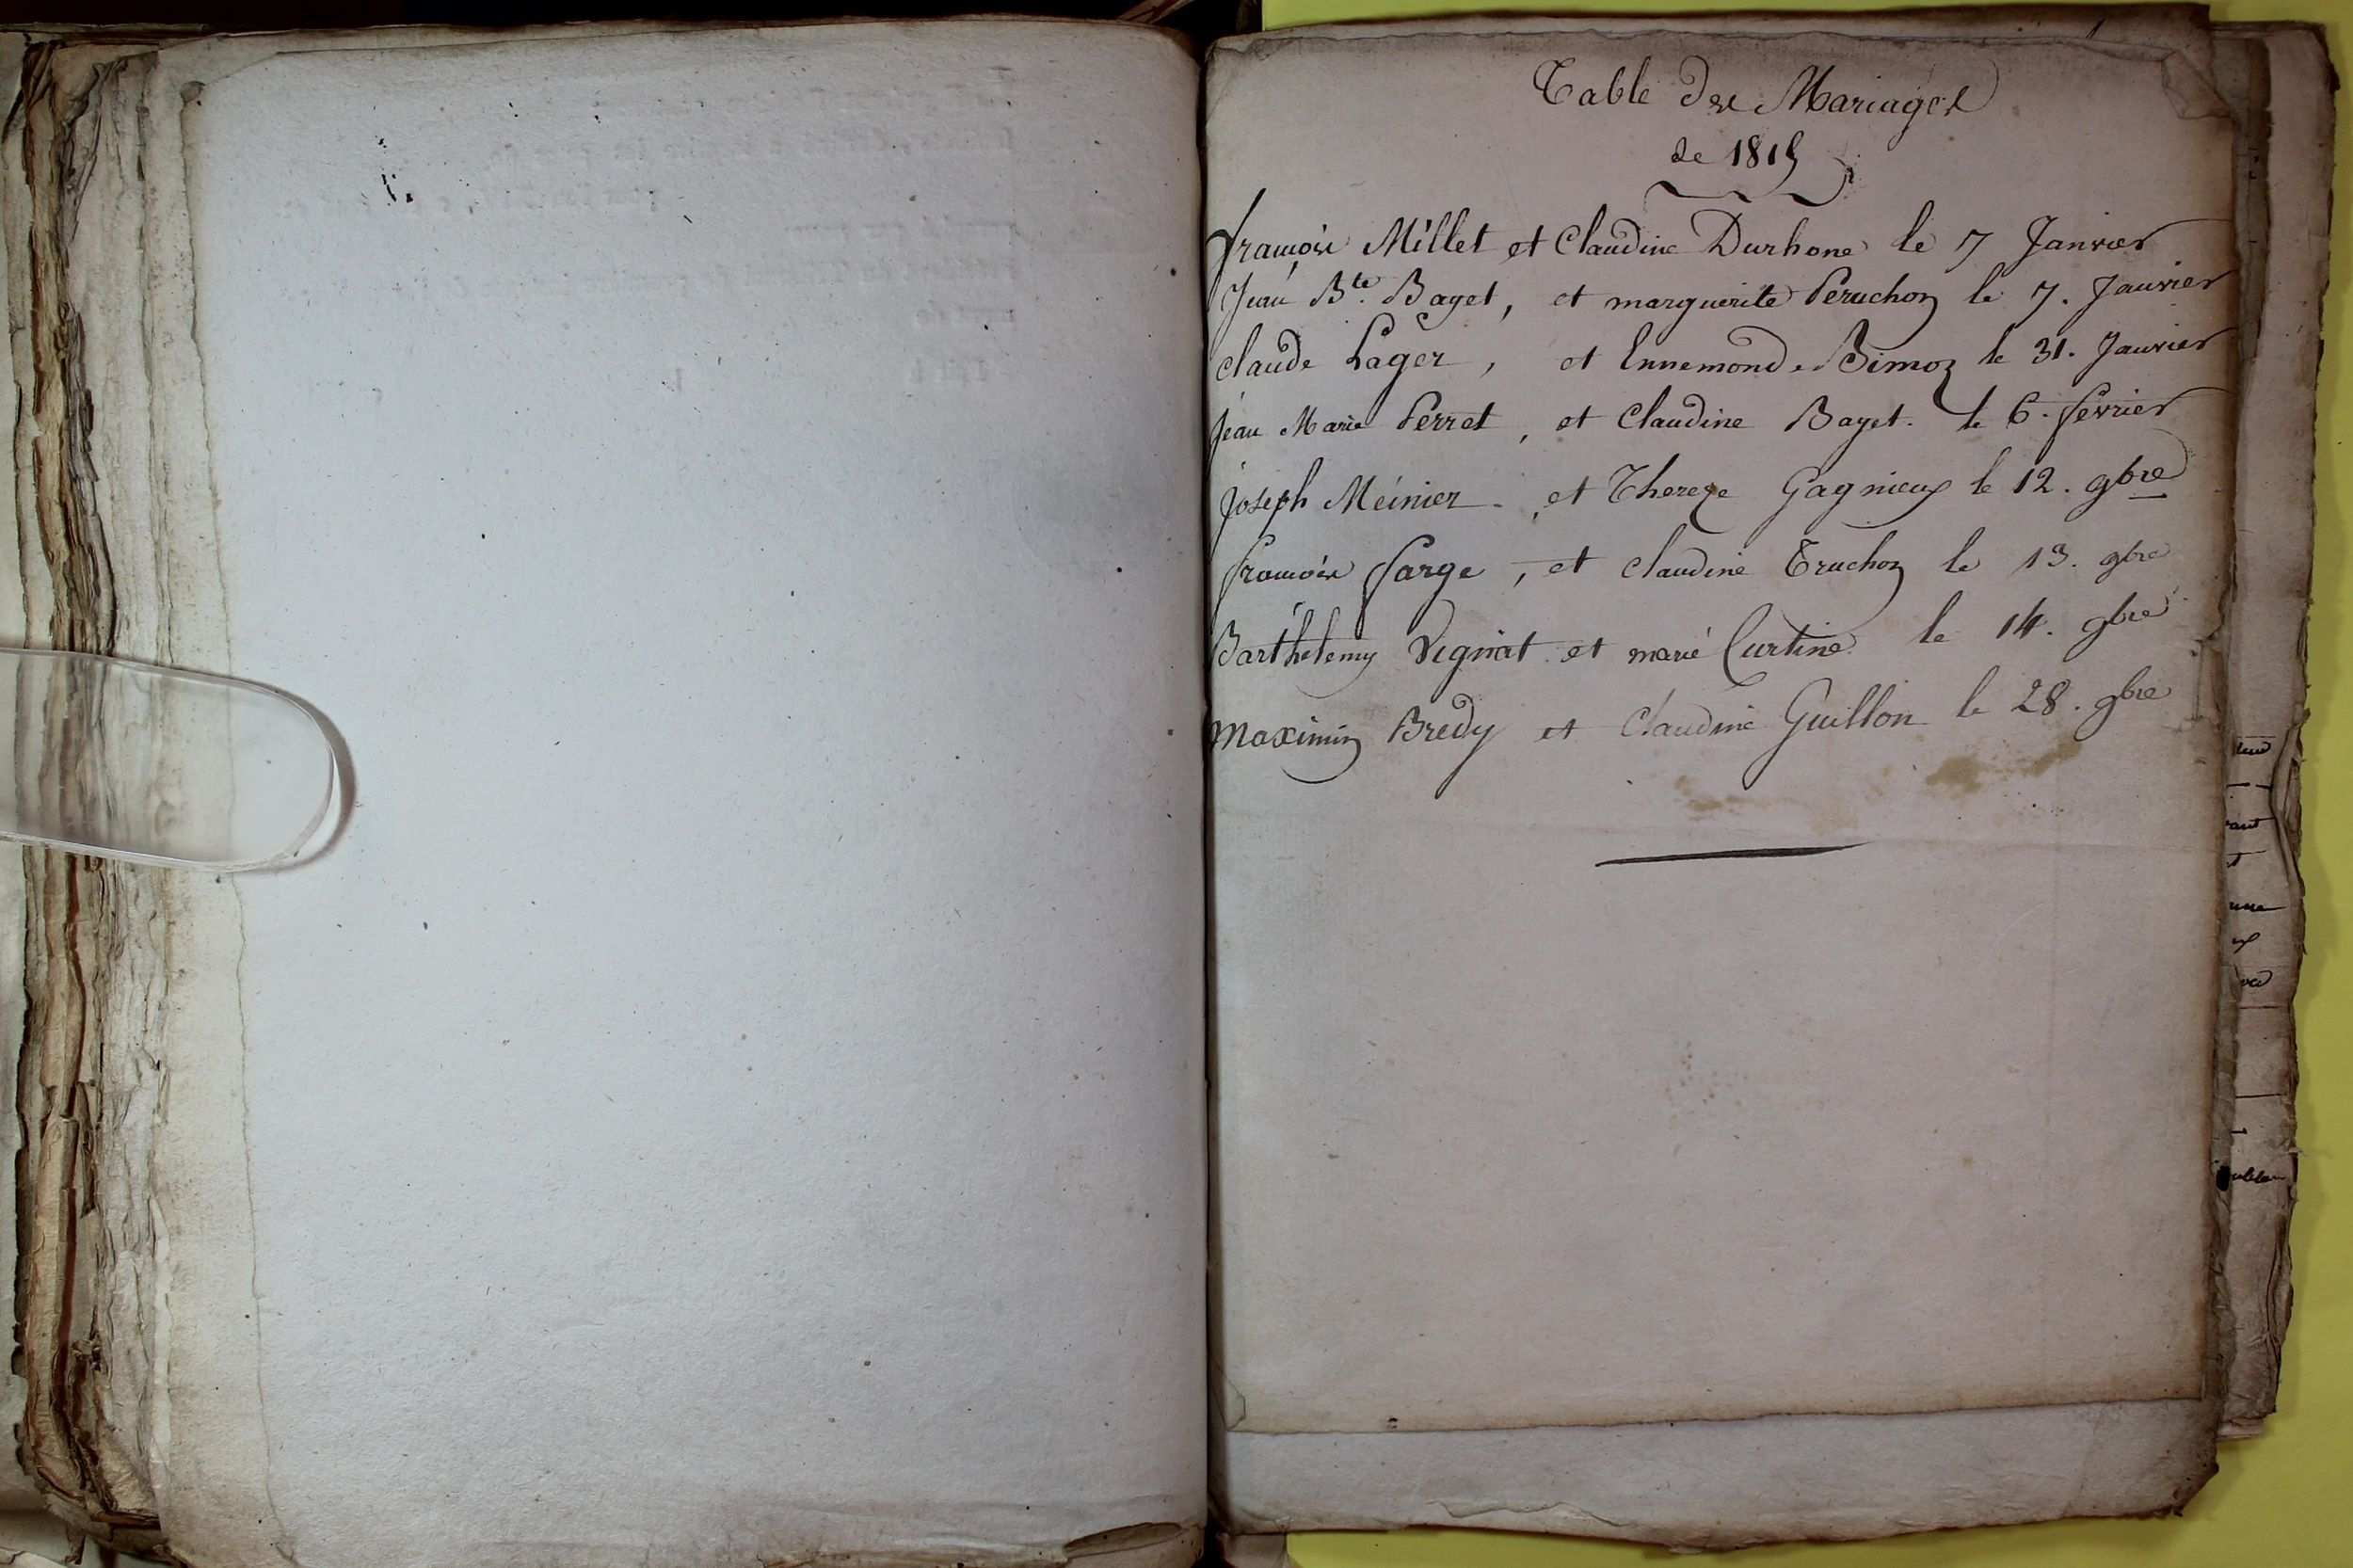 Table des Mariages
de 1815
françois Millet et Claudine Durhone le 7 Janvier
Jean Bte. Bayet, et marguerite Peruchon le 7. Janvier
claude Lager, et Ennemonde Bimoz le 31. Janvier
Jean Marie Perret, et Claudine Bayet. le 6. fevrier
Joseph Meinier, et Thereze Gagnieux le 12. 9bre
françois farge, et claudine Truchon le 13. 9bre
Barthelemy Vignat et marie Curtine le 14. 9bre
Maximin Bredy et Claudine Guillon le 28. 9bre